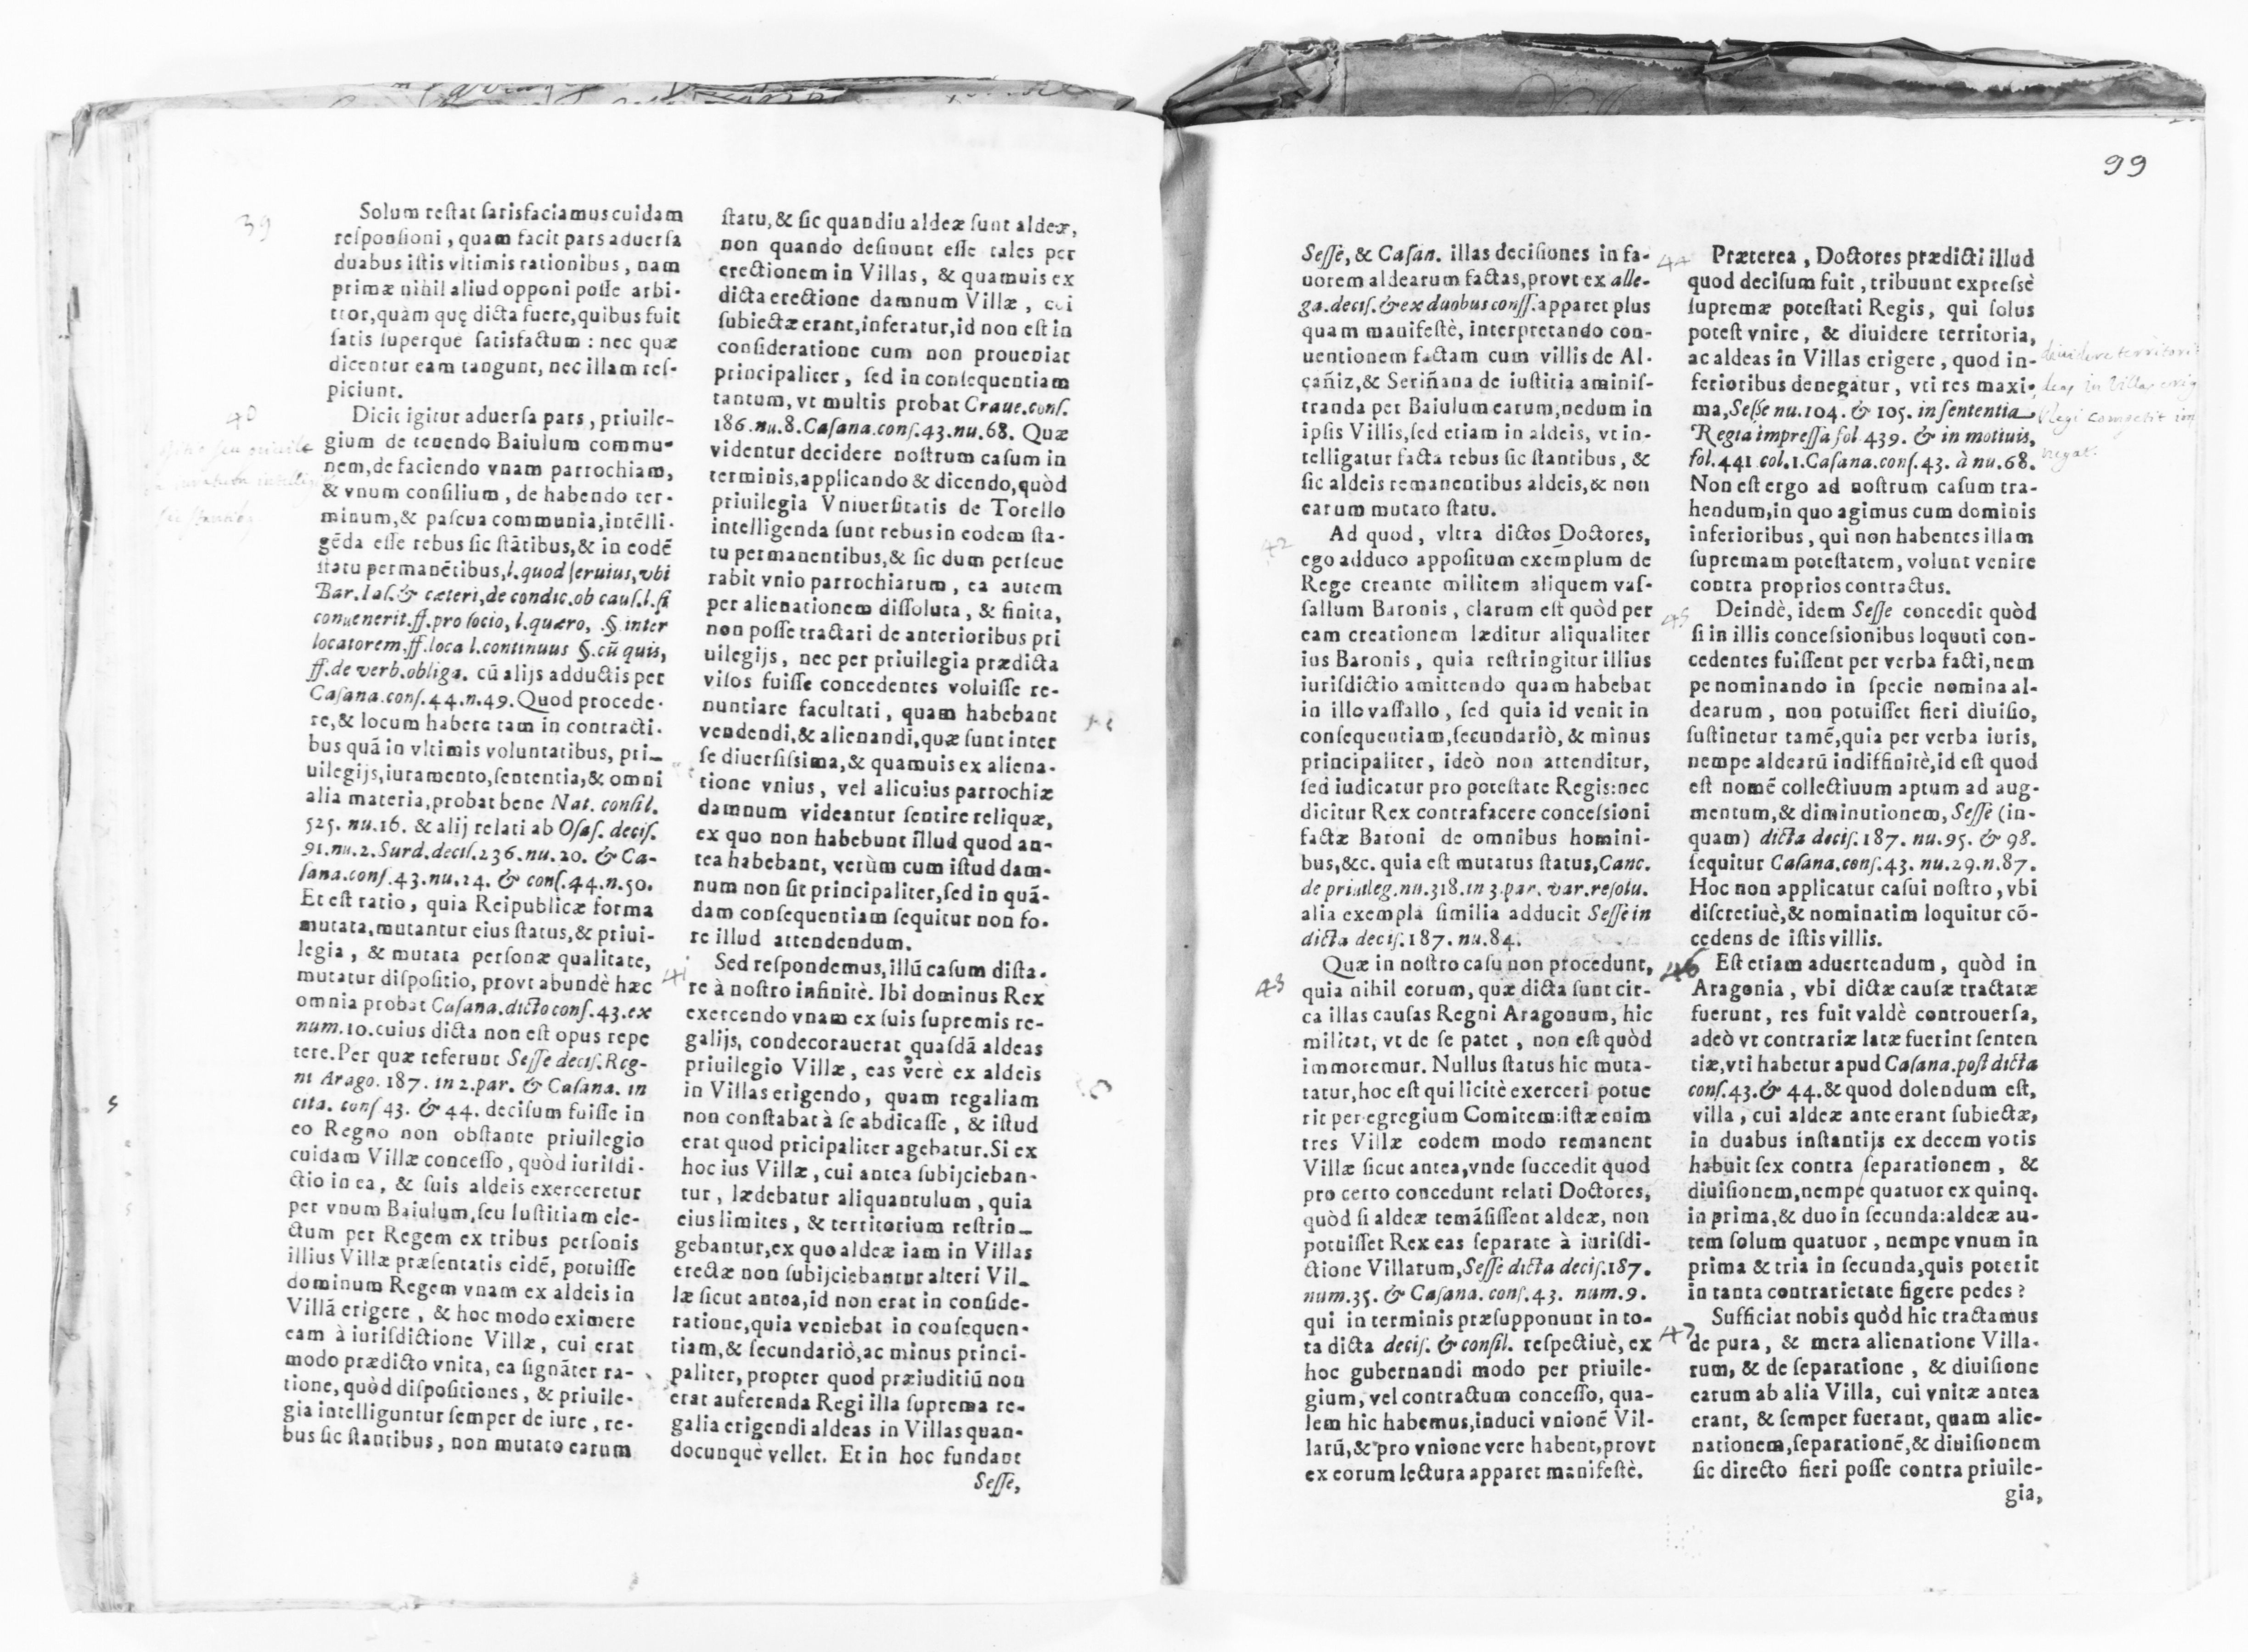 39
Solum restat satisfaciamus cuidam
responsioni, quam facit pars aduersa
duabus istis vltimis rationibus, nam
primæ nihil aliud opponi posse arbi-
tror, quàm quę dicta fuere, quibus fuit
satis superque satisfactum: nec quæ
dicentur eam tangunt, nec illam res-
piciunt.
40
Dicit igitur aduersa pars, priuile-
gium de tenendo Baiulum commu-
nem, de faciendo vnam parrochiam,
& vnum consilium, de habendo ter-
minum, & pascua communia, intēlli-
gēda esse rebus sic stātibus, & in eodē
statu permanētibus, l. quod seruius, vbi
Bar. Ias. & cæteri, de condic. ob caus. l. si
conuenerit. ff. pro socio, l. quæro, §. inter
locatorem. ff. loca l. continuus §. cū quis,
ff. de verb. obliga. cū alijs adductis per
Casana. cons. 44. n. 49. Quod procede-
re, & locum habere tam in contracti-
bus quā in vltimis voluntatibus, pri-
uilegijs, iuramento, sententia, & omni
alia materia, probat bene Nat. consil.
525. nu. 16. & alij relati ab Osas. decis.
91. nu. 2. Surd. decis. 236. nu. 20. & Ca-
sana. cons. 43. nu. 24. & cons. 44. n. 50.
Et est ratio, quia Reipublicæ forma
mutata, mutantur eius status, & priui-
legia, & mutata personæ qualitate,
mutatur dispositio, provt abundè hæc
omnia probat Casana. dicto cons. 43. ex
num. 10. cuius dicta non est opus repe
tere. Per quæ referunt Sesse decis. Reg-
ni Arago. 187. in 2. par. & Casana. in
cita. cons 43. & 44. decisum fuisse in
eo Regno non obstante priuilegio
cuidam Villæ concesso, quòd iurisdi-
ctio in ea, & suis aldeis exerceretur
per vnum Baiulum, seu Iustitiam ele-
ctum per Regem ex tribus personis
illius Villæ præsentatis eidē, potuisse
dominum Regem vnam ex aldeis in
Villā erigere, & hoc modo eximere
eam à iurisdictione Villæ, cui erat
modo prædicto vnita, ea signāter ra-
tione, quòd dispositiones, & priuile-
gia intelliguntur semper de iure, re-
bus sic stantibus, non mutato earum
statu, & sic quandiu aldeæ sunt aldeæ,
non quando desinunt esse tales per
erectionem in Villas, & quamuis ex
dicta erectione damnum Villæ, cui
subiectæ erant, inferatur, id non est in
consideratione cum non proueniat
principaliter, sed in consequentiam
tantum, vt multis probat Craue. cons.
186. nu. 8. Casana. cons. 43. nu. 68. Quæ
videntur decidere nostrum casum in
terminis, applicando & dicendo, quòd
priuilegia Vniuersitatis de Torello
intelligenda sunt rebus in eodem sta-
tu permanentibus, & sic dum perseue
rabit vnio parrochiarum, ea autem
per alienationem dissoluta, & finita,
non posse tractari de anterioribus pri
uilegijs, nec per priuilegia prædicta
visos fuisse concedentes voluisse re-
nuntiare facultati, quam habebant
vendendi, & alienandi, quæ sunt inter
se diuersissima, & quamuis ex aliena-
tione vnius, vel alicuius parrochiæ
damnum videantur sentire reliquæ,
ex quo non habebunt illud quod an-
tea habebant, verùm cum istud dam-
num non sit principaliter, sed in quā-
dam consequentiam sequitur non fo-
re illud attendendum.
41
Sed respondemus, illū casum dista-
re à nostro infinitè. Ibi dominus Rex
exercendo vnam ex suis supremis re-
galijs, condecorauerat quasdā aldeas
priuilegio Villæ, eas verè ex aldeis
in Villas erigendo, quam regaliam
non constabat à se abdicasse, & istud
erat quod pricipaliter agebatur. Si ex
hoc ius Villæ, cui antea subijcieban-
tur, lædebatur aliquantulum, quia
eius limites, & territorium restrin-
gebantur, ex quo aldeæ iam in Villas
erectæ non subijciebantur alteri Vil-
læ sicut antea, id non erat in conside-
ratione, quia veniebat in consequen-
tiam, & secundariò, ac minus princi-
paliter, propter quod præiuditiū non
erat auferenda Regi illa suprema re-
galia erigendi aldeas in Villas quan-
docunquè vellet. Et in hoc fundant
Sesse,
99
Sesse, & Casan. illas decisiones in fa-
uorem aldearum factas, provt ex alle-
ga. decis. & ex duobus conss. apparet plus
quam manifestè, interpretando con-
uentionem factam cum villis de Al-
çañiz, & Seriñana de iustitia aminis-
tranda per Baiulum earum, nedum in
ipsis Villis, sed etiam in aldeis, vt in-
telligatur facta rebus sic stantibus, &
sic aldeis remanentibus aldeis, & non
earum mutato statu.
42
Ad quod, vltra dictos Doctores,
ego adduco appositum exemplum de
Rege creante militem aliquem vas-
sallum Baronis, clarum est quòd per
eam creationem læditur aliqualiter
ius Baronis, quia restringitur illius
iurisdictio amittendo quam habebat
in illo vassallo, sed quia id venit in
consequentiam, secundariò, & minus
principaliter, ideò non attenditur,
sed iudicatur pro potestate Regis: nec
dicitur Rex contrafacere concessioni
factæ Baroni de omnibus homini-
bus, &c. quia est mutatus status, Canc.
de priuileg. nu. 318. in 3. par. var. resolu.
alia exempla similia adducit Sesse in
dicta decis. 187. nu. 84.
43
Quæ in nostro casu non procedunt,
quia nihil eorum, quæ dicta sunt cir-
ca illas causas Regni Aragonum, hic
militat, vt de se patet, non est quòd
immoremur. Nullus status hic muta-
tatur, hoc est qui licitè exerceri potue
rit per egregium Comitem: istæ enim
tres Villæ eodem modo remanent
Villæ sicut antea, vnde succedit quod
pro certo concedunt relati Doctores,
quòd si aldeæ remāsissent aldeæ, non
potuisset Rex eas separate à iurisdi-
ctione Villarum, Sesse dicta decis. 187.
num. 35. & Casana. cons. 43. num. 9.
qui in terminis præsupponunt in to-
ta dicta decis. & consil. respectiuè, ex
hoc gubernandi modo per priuile-
gium, vel contractum concesso, qua-
lem hic habemus, induci vnionē Vil-
larū, & pro vnione vere habent, provt
ex eorum lectura apparet manifestè.
44
Præterea, Doctores prædicti illud
quod decisum fuit, tribuunt expressè
supremæ potestati Regis, qui solus
potest vnire, & diuidere territoria,
ac aldeas in Villas erigere, quod in-
ferioribus denegatur, vti res maxi-
ma, Sesse nu. 104. & 105. in sententia
Regia impressa fol 439. & in motiuis,
fol. 441 col. 1. Casana. cons. 43. à nu. 68.
Non est ergo ad nostrum casum tra-
hendum, in quo agimus cum dominis
inferioribus, qui non habentes illam
supremam potestatem, volunt venire
contra proprios contractus.
45
Deindè, idem Sesse concedit quòd
si in illis concessionibus loquuti con-
cedentes fuissent per verba facti, nem
pe nominando in specie nomina al-
dearum, non potuisset fieri diuisio,
sustinetur tamē, quia per verba iuris,
nempe aldearū indiffinitè, id est quod
est nomē collectiuum aptum ad aug-
mentum, & diminutionem, Sesse (in-
quam) dicta decis. 187. nu. 95. & 98.
sequitur Casana. cons. 43. nu. 29. n. 87.
Hoc non applicatur casui nostro, vbi
discretiuè, & nominatim loquitur cō-
cedens de istis villis.
46
Est etiam aduertendum, quòd in
Aragonia, vbi dictæ causæ tractatæ
fuerunt, res fuit valdè controuersa,
adeò vt contrariæ latæ fuerint senten
tiæ, vti habetur apud Casana. post dicta
cons. 43. & 44. & quod dolendum est,
villa, cui aldeæ ante erant subiectæ,
in duabus instantijs ex decem votis
habuit sex contra separationem, &
diuisionem, nempe quatuor ex quinq.
in prima, & duo in secunda: aldeæ au-
tem solum quatuor, nempe vnum in
prima & tria in secunda, quis poterit
in tanta contrarietate figere pedes?
47
Sufficiat nobis quòd hic tractamus
de pura, & mera alienatione Villa-
rum, & de separatione, & diuisione
earum ab alia Villa, cui vnitæ antea
erant, & semper fuerant, quam alie-
nationem, separationē, & diuisionem
sic directo fieri posse contra priuile-
gia,